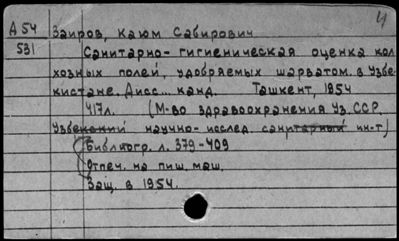 4
А 54 Заиров, Каюм Сабирович
531 Санитарно-гигиеническая оценка кол
хозных полей, удобряемых шарватом в Узбе-
кистане. Дисс... канд. Ташкент, 1954
417л. (М-во здравоохранения Уз.ССР
Узбекский научно-исслед. санитарный ин-т)
Библиогр. л. 379-409
Отпеч. на пиш. маш.
Защ. в 1954.